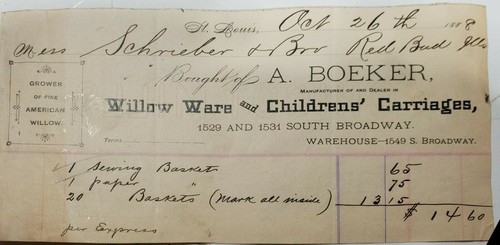 St. Louis, Oct 26th 1888
Mess Schrieber & Bro Red Bud Ills
Bought of A. BOEKER,
MANUFACTURER OF AND DEALER IN
Willow Ware and Childrens' Carriages,
1529 AND 1531 SOUTH BROADWAY.
WAREHOUSE—1549 S. BROADWAY.
GROWER
OF FINE
AMERICAN
WILLOW.
Terms
1 Sewing Basket 65
1 paper " 75
20 Baskets (Mark all inside) 13 15
$ 14 60
per Express